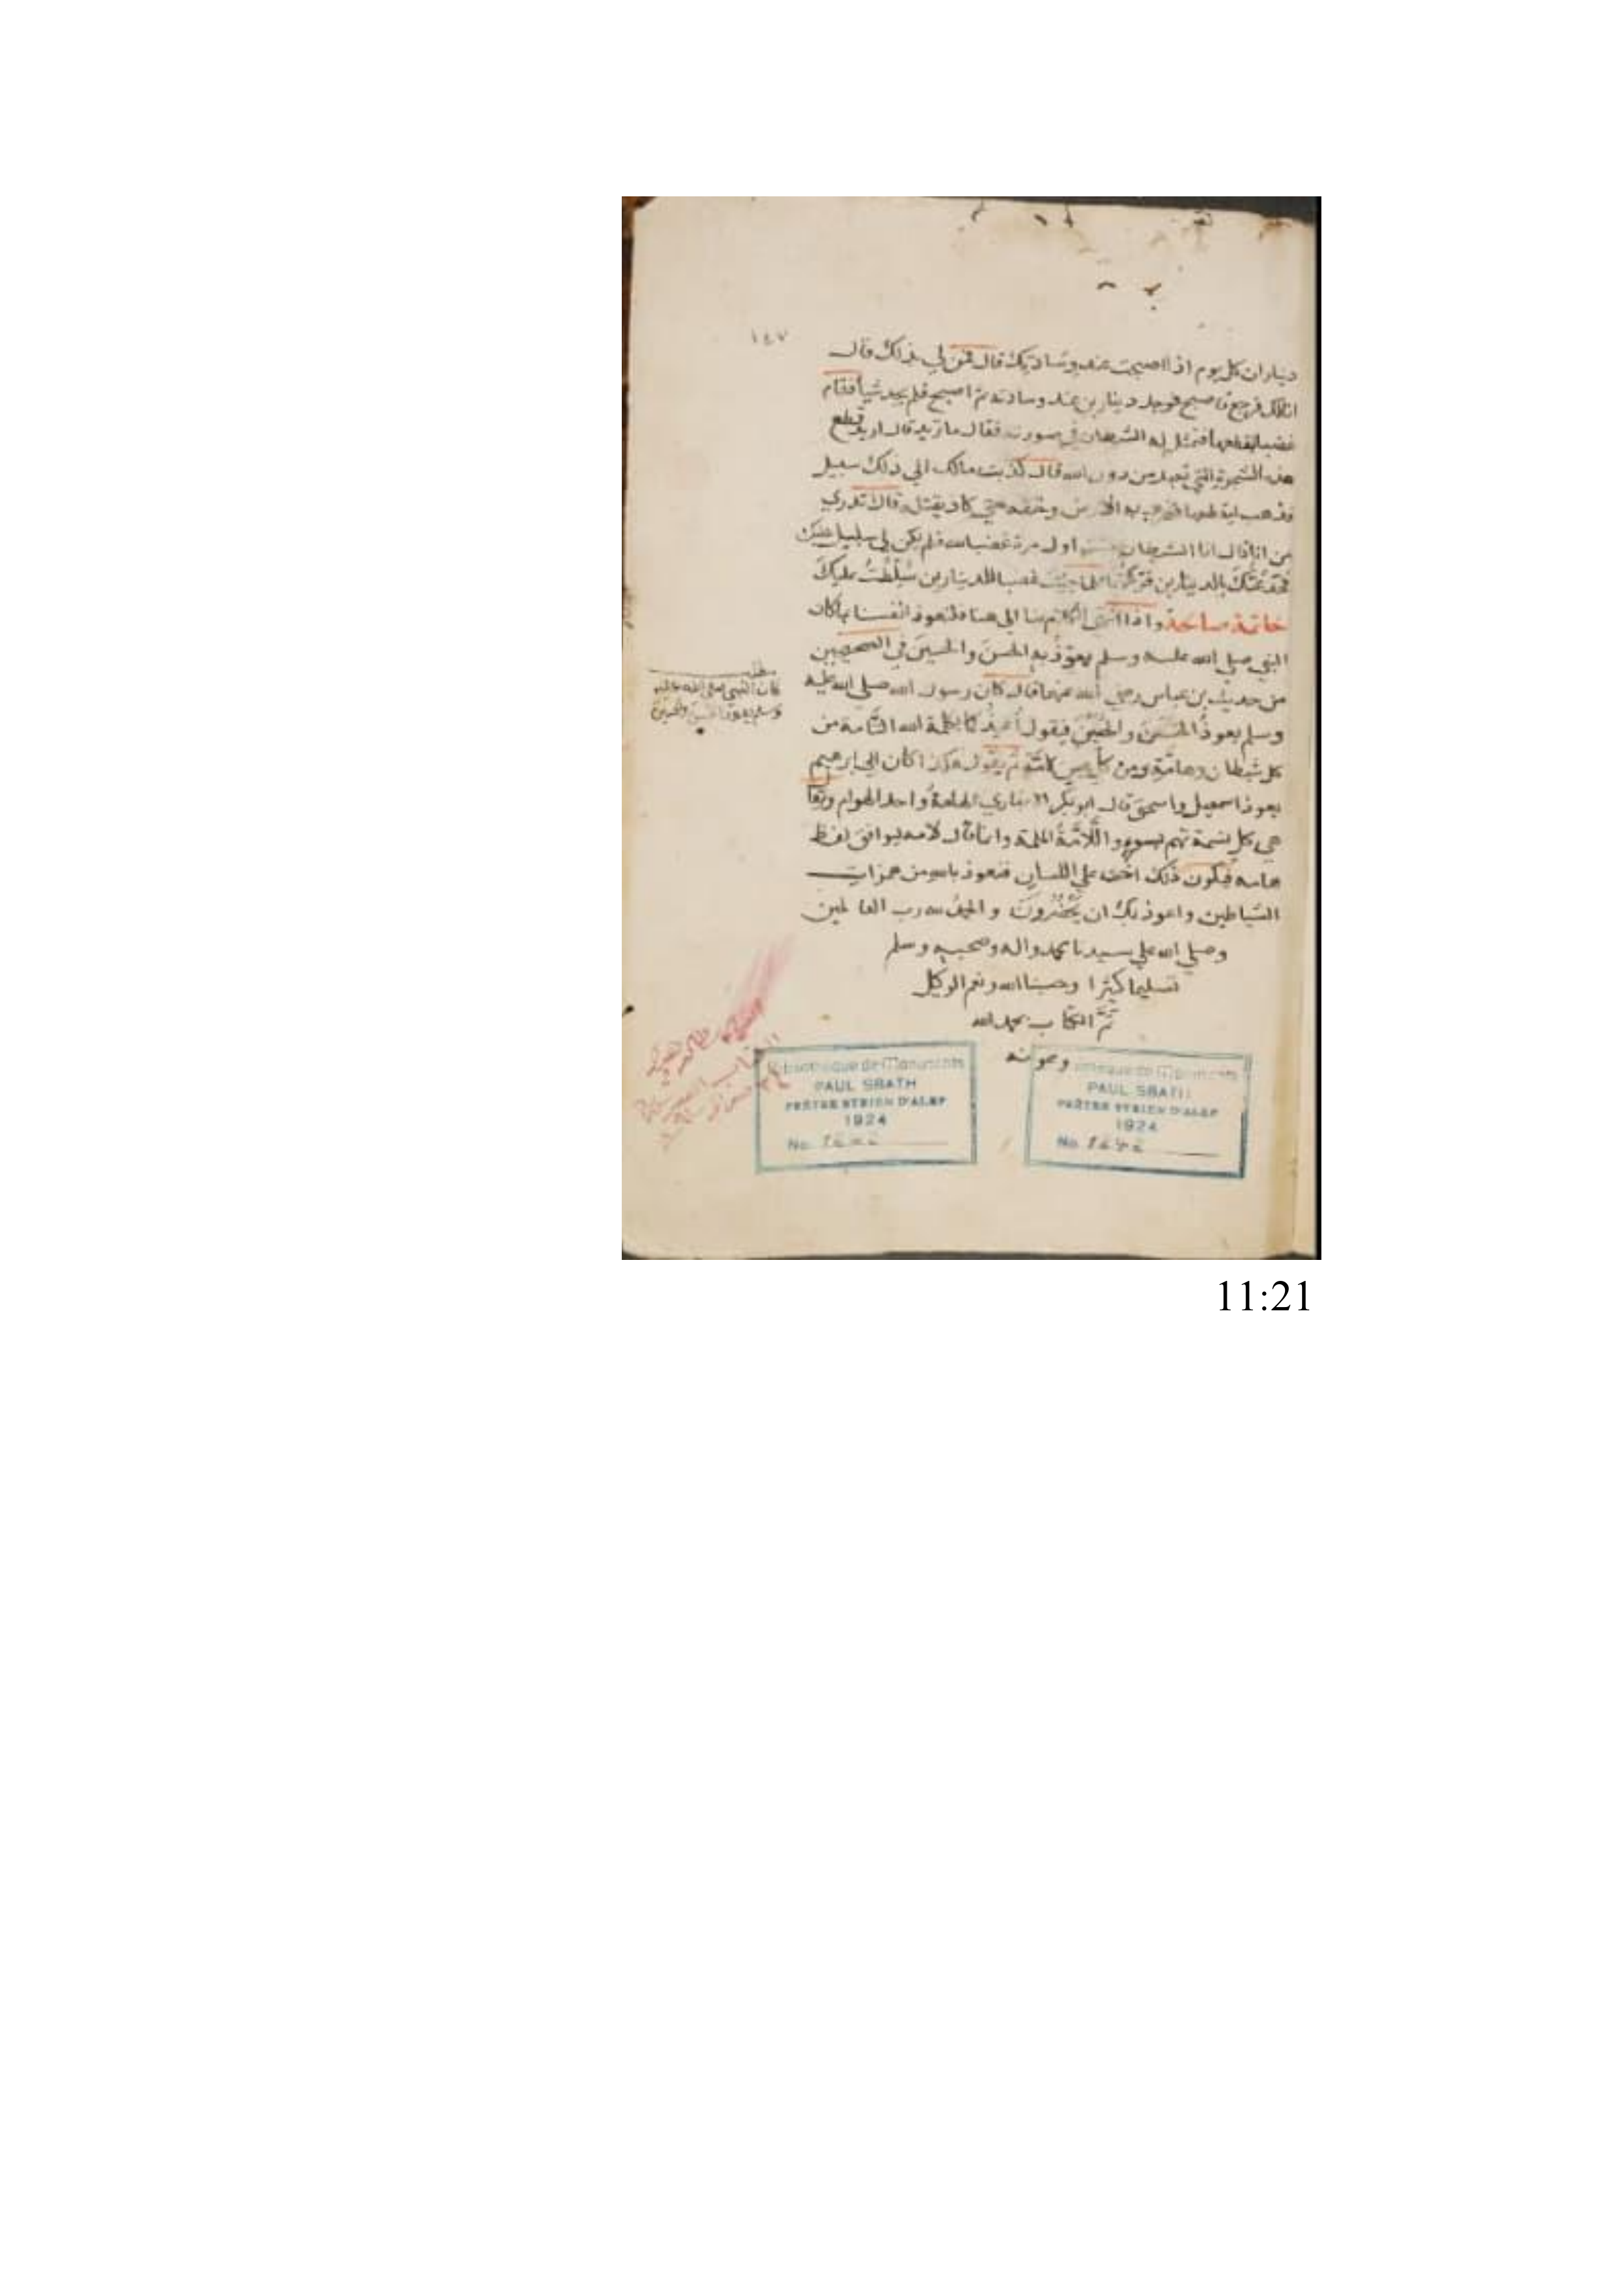 ١٤٧
ديناران كل يوم اذا اصبحت عند وسادتك قال فمن لي بذلك قال
انا لك فرجع فاصبح فوجد دينارين عند وسادته ثم اصبح فلم يجد شيأ فقام
غضبا ليقطعها فتمثل له الشيطان في صورته فقال ما تريد قال اريد قطع
هذه الشجرة التي تعبد من دون الله قال كذبت مالك الي ذلك سبيل
فذهب ليقطعها فضرب به الارض وخنقه حتي كاد يقتله قال تدري
من انا قال انا الشيطان اول مرة غضبا لله فلم يكن لي سبيل عليك
فخدعتك بالدينارين فتركتها فلما جئت غضبا للدينارين سُلِّطتُ عليك
خاتمة صالحة واذا انتهى الكلام بنا الي هنا فلنعوذ انفسنا بما كان
النبي صلي الله عليه وسلم يعوّذ به الحسنَ والحسينَ في الصحيحين
من حديث بن عباس رضي الله عنهما قال كان رسول الله صلي الله عليه
وسلم يعوذُ الحسنَ والحسينَ فيقول أعيذكما بكلمة الله التّامة من
كل شيطان وهامّة ومن كل عين لامّة ثم يقول هكذا كان ابي ابرهيم
يعوذ اسمعيل واسحق قال ابو بكر الانباري الهامةُ واحد الهوام ويقا
هي كل نسمة تهم بسوء واللّامّةُ الملمة وانما قال لامه ليوافق لفظ
هامه فيكون ذلك اخف علي اللسان فنعوذ بالله من همزات
الشياطين واعوذ بك ان يَحْضُرونَ والحمد لله رب العالمين
وصلي الله علي سيدنا محمد واله وصحبه وسلم
تسليما كثيرا وحسبنا الله ونعم الوكيل
تمّ الكتاب بحمد الله
وعونه
مطلب
كان النبي صلى الله عليه
وسلم يعوذ الحسن والحسين
Bibliothèque de Manuscrits
PAUL SBATH
PRÊTRE SYRIEN D'ALEP
1924
No.
Bibliothèque de Manuscrits
PAUL SBATH
PRÊTRE SYRIEN D'ALEP
1924
No.
11:21